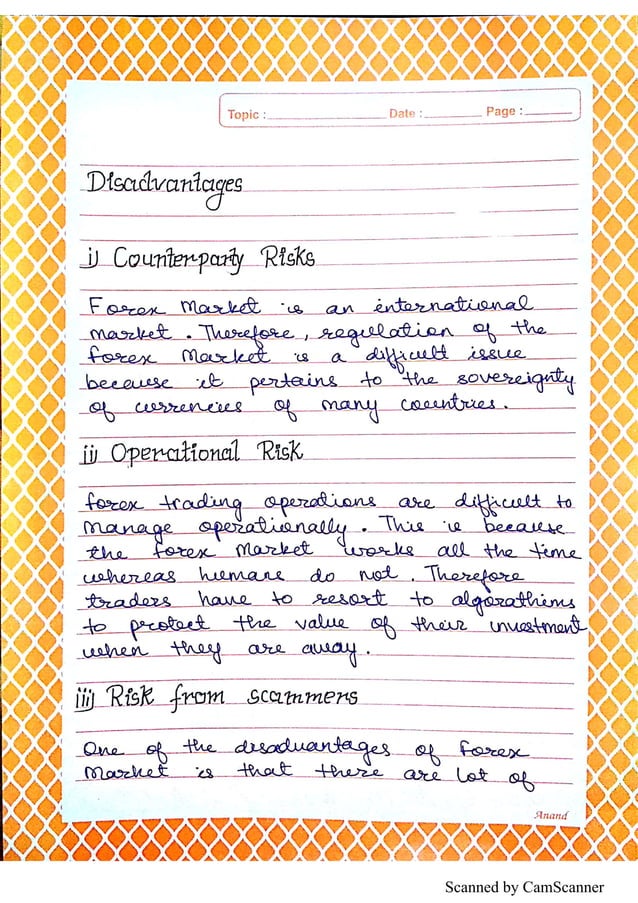 Topic : Date : Page :
Disadvantages
i) Counterparty Risks
Forex Market is an international
market. Therefore, regulation of the
forex Market is a difficult issue
because it pertains to the sovereignty
of currencies of many countries.
ii) Operational Risk
forex trading operations are difficult to
manage operationally. This is because
the forex Market works all the time
whereas humans do not. Therefore
traders have to resort to algorathims
to protect the value of their investment
when they are away.
iii) Risk from scammers
One of the disadvantages of forex
Market is that there are lot of
Anand
Scanned by CamScanner